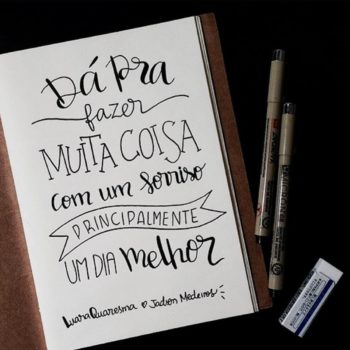 Dá Pra
fazer
MUITA COISA
com um sorriso
PRINCIPALMENTE
UM DIA melhor
Luara Quaresma ♡ Jadson Medeiros